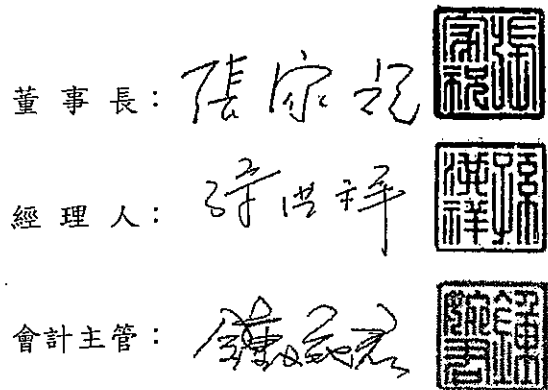 董事長：張家祝 張家祝
經理人：孫洪祥 孫洪祥
會計主管：鍾菀君